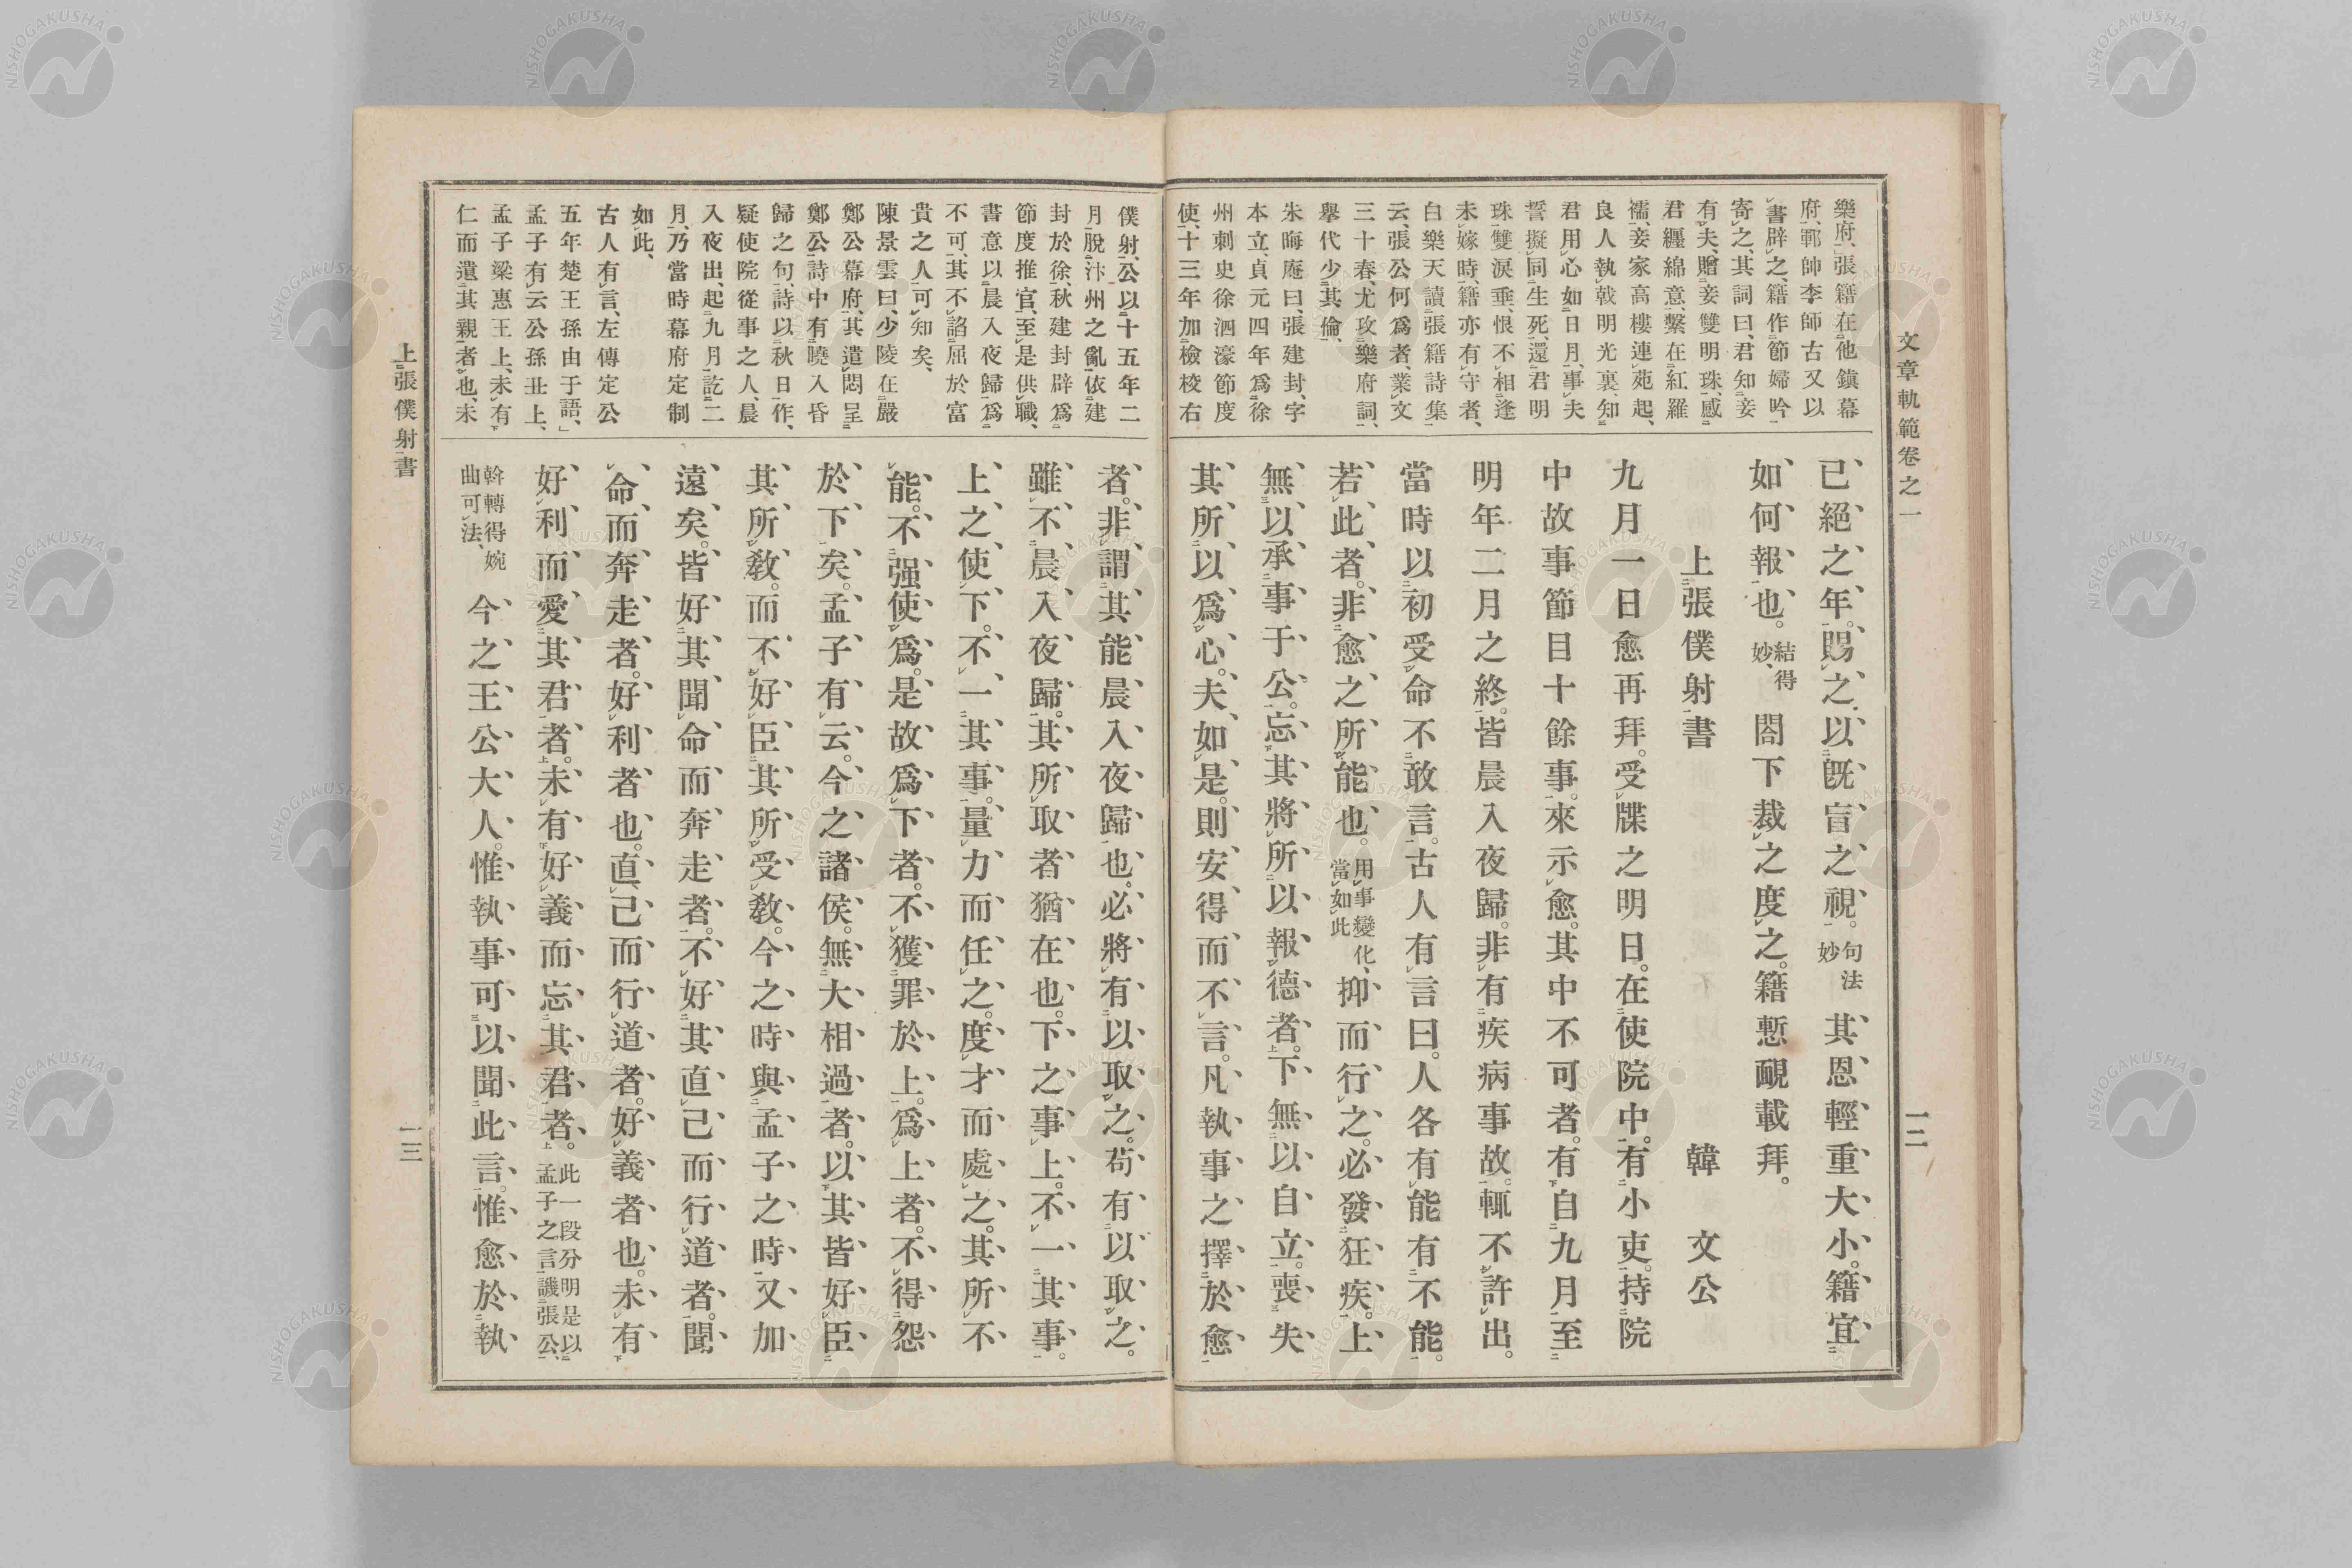 文章軌範卷之一
一二
樂府、張籍在他鎭幕
府、鄆帥李師古又以
書辟之、籍作節婦吟
寄之、其詞曰、君知妾
有夫、贈妾雙明珠、感
君纏綿意、繫在紅羅
襦、妾家高樓連苑起、
良人執戟明光裏、知
君用心如日月、事夫
誓擬同生死、還君明
珠雙淚垂、恨不相逢
未嫁時、籍亦有守者、
白樂天讀張籍詩集
云、張公何爲者、業文
三十春、尤攻樂府詞、
擧代少其倫、
朱晦庵曰、張建封、字
本立、貞元四年爲徐
州刺史徐泗濠節度
使、十三年加檢校右
已絕之年。賜之以既盲之視。句法妙其恩輕重大小。籍宜
如何報也。結得妙、閤下裁之度之。籍慙靦載拜。
上張僕射書 韓文公
九月一日愈再拜。受牒之明日。在使院中。有小吏。持院
中故事節目十餘事。來示愈。其中不可者。有自九月至
明年二月之終。皆晨入夜歸。非有疾病事故。輒不許出。
當時以初受命不敢言。古人有言曰。人各有能有不能。
若此者。非愈之所能也。用事變化、當如此抑而行之。必發狂疾。上
無以承事于公。忘其將所以報德者。下無以自立。喪失
其所以爲心。夫如是。則安得而不言。凡執事之擇於愈
僕射、公以十五年二
月脫汴州之亂、依建
封於徐、秋建封辟爲
節度推官、至是供職、
書意以晨入夜歸爲
不可、其不諂屈於富
貴之人、可知矣、
陳景雲曰、少陵在嚴
鄭公幕府、其遣悶呈
鄭公詩中有曉入昏
歸之句、詩以秋日作、
疑使院從事之人、晨
入夜出、起九月訖二
月、乃當時幕府定制
如此、
古人有言、左傳定公
五年楚王孫由于語、」
孟子有云公孫丑上、
孟子梁惠王上、未有
仁而遺其親者也、未
者。非謂其能晨入夜歸也。必將有以取之。苟有以取之。
雖不晨入夜歸。其所取者猶在也。下之事上。不一其事。
上之使下。不一其事。量力而任之。度才而處之。其所不
能。不强使爲。是故爲下者。不獲罪於上。爲上者。不得怨
於下矣。孟子有云。今之諸侯。無大相過者。以其皆好臣
其所敎。而不好臣其所受敎。今之時與孟子之時又加
遠矣。皆好其聞命而奔走者。不好其直己而行道者。聞
命而奔走者。好利者也。直己而行道者。好義者也。未有
好利而愛其君者。未有好義而忘其君者。此一段分明是以孟子之言譏張公、
斡轉得婉曲可法、今之王公大人。惟執事可以聞此言。惟愈於執
上張僕射書
一三